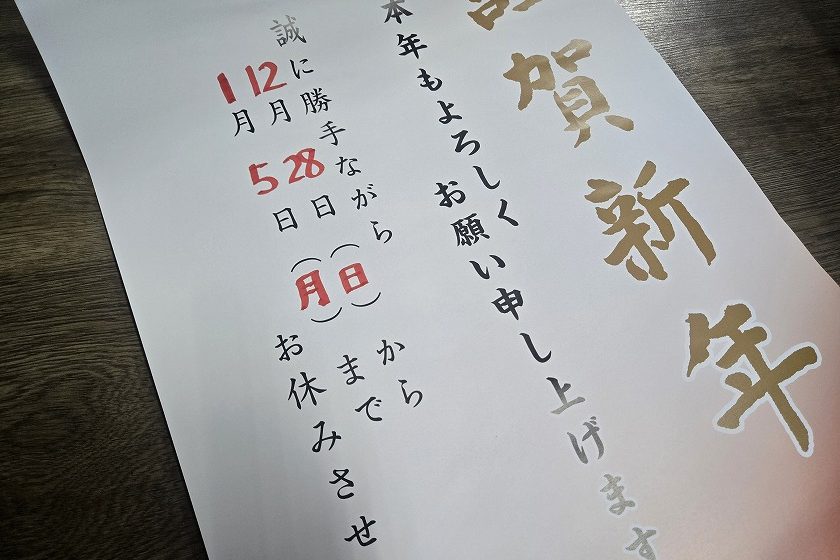 謹賀新年
本年もよろしくお願い申し上げます
誠に勝手ながら
12月28日(日)から
1月5日(月)まで
お休みさせ